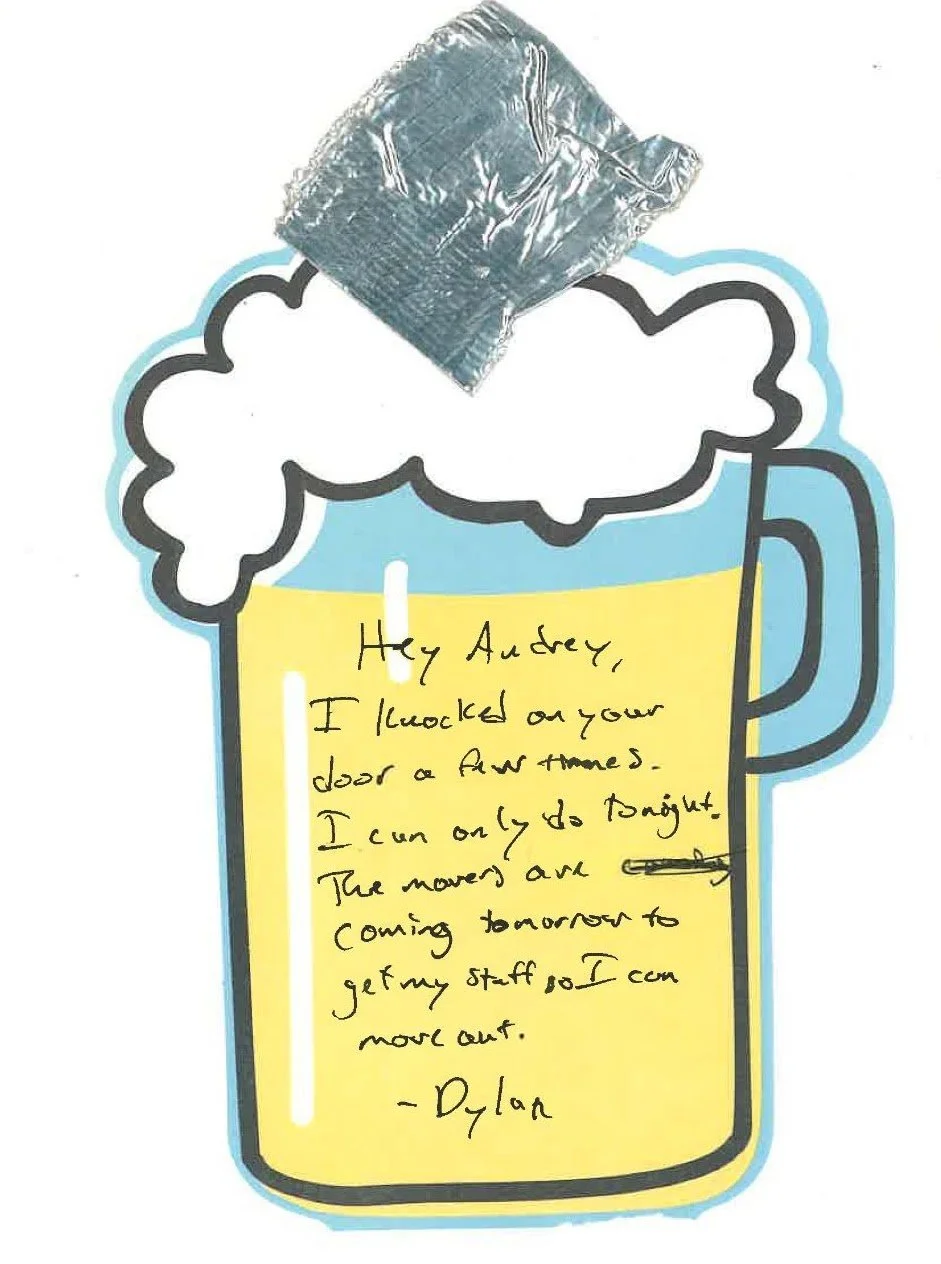 Hey Audrey,
I knocked on your
door a few times.
I can only do tonight.
The movers are
coming tomorrow to
get my stuff so I can
move out.
- Dylan